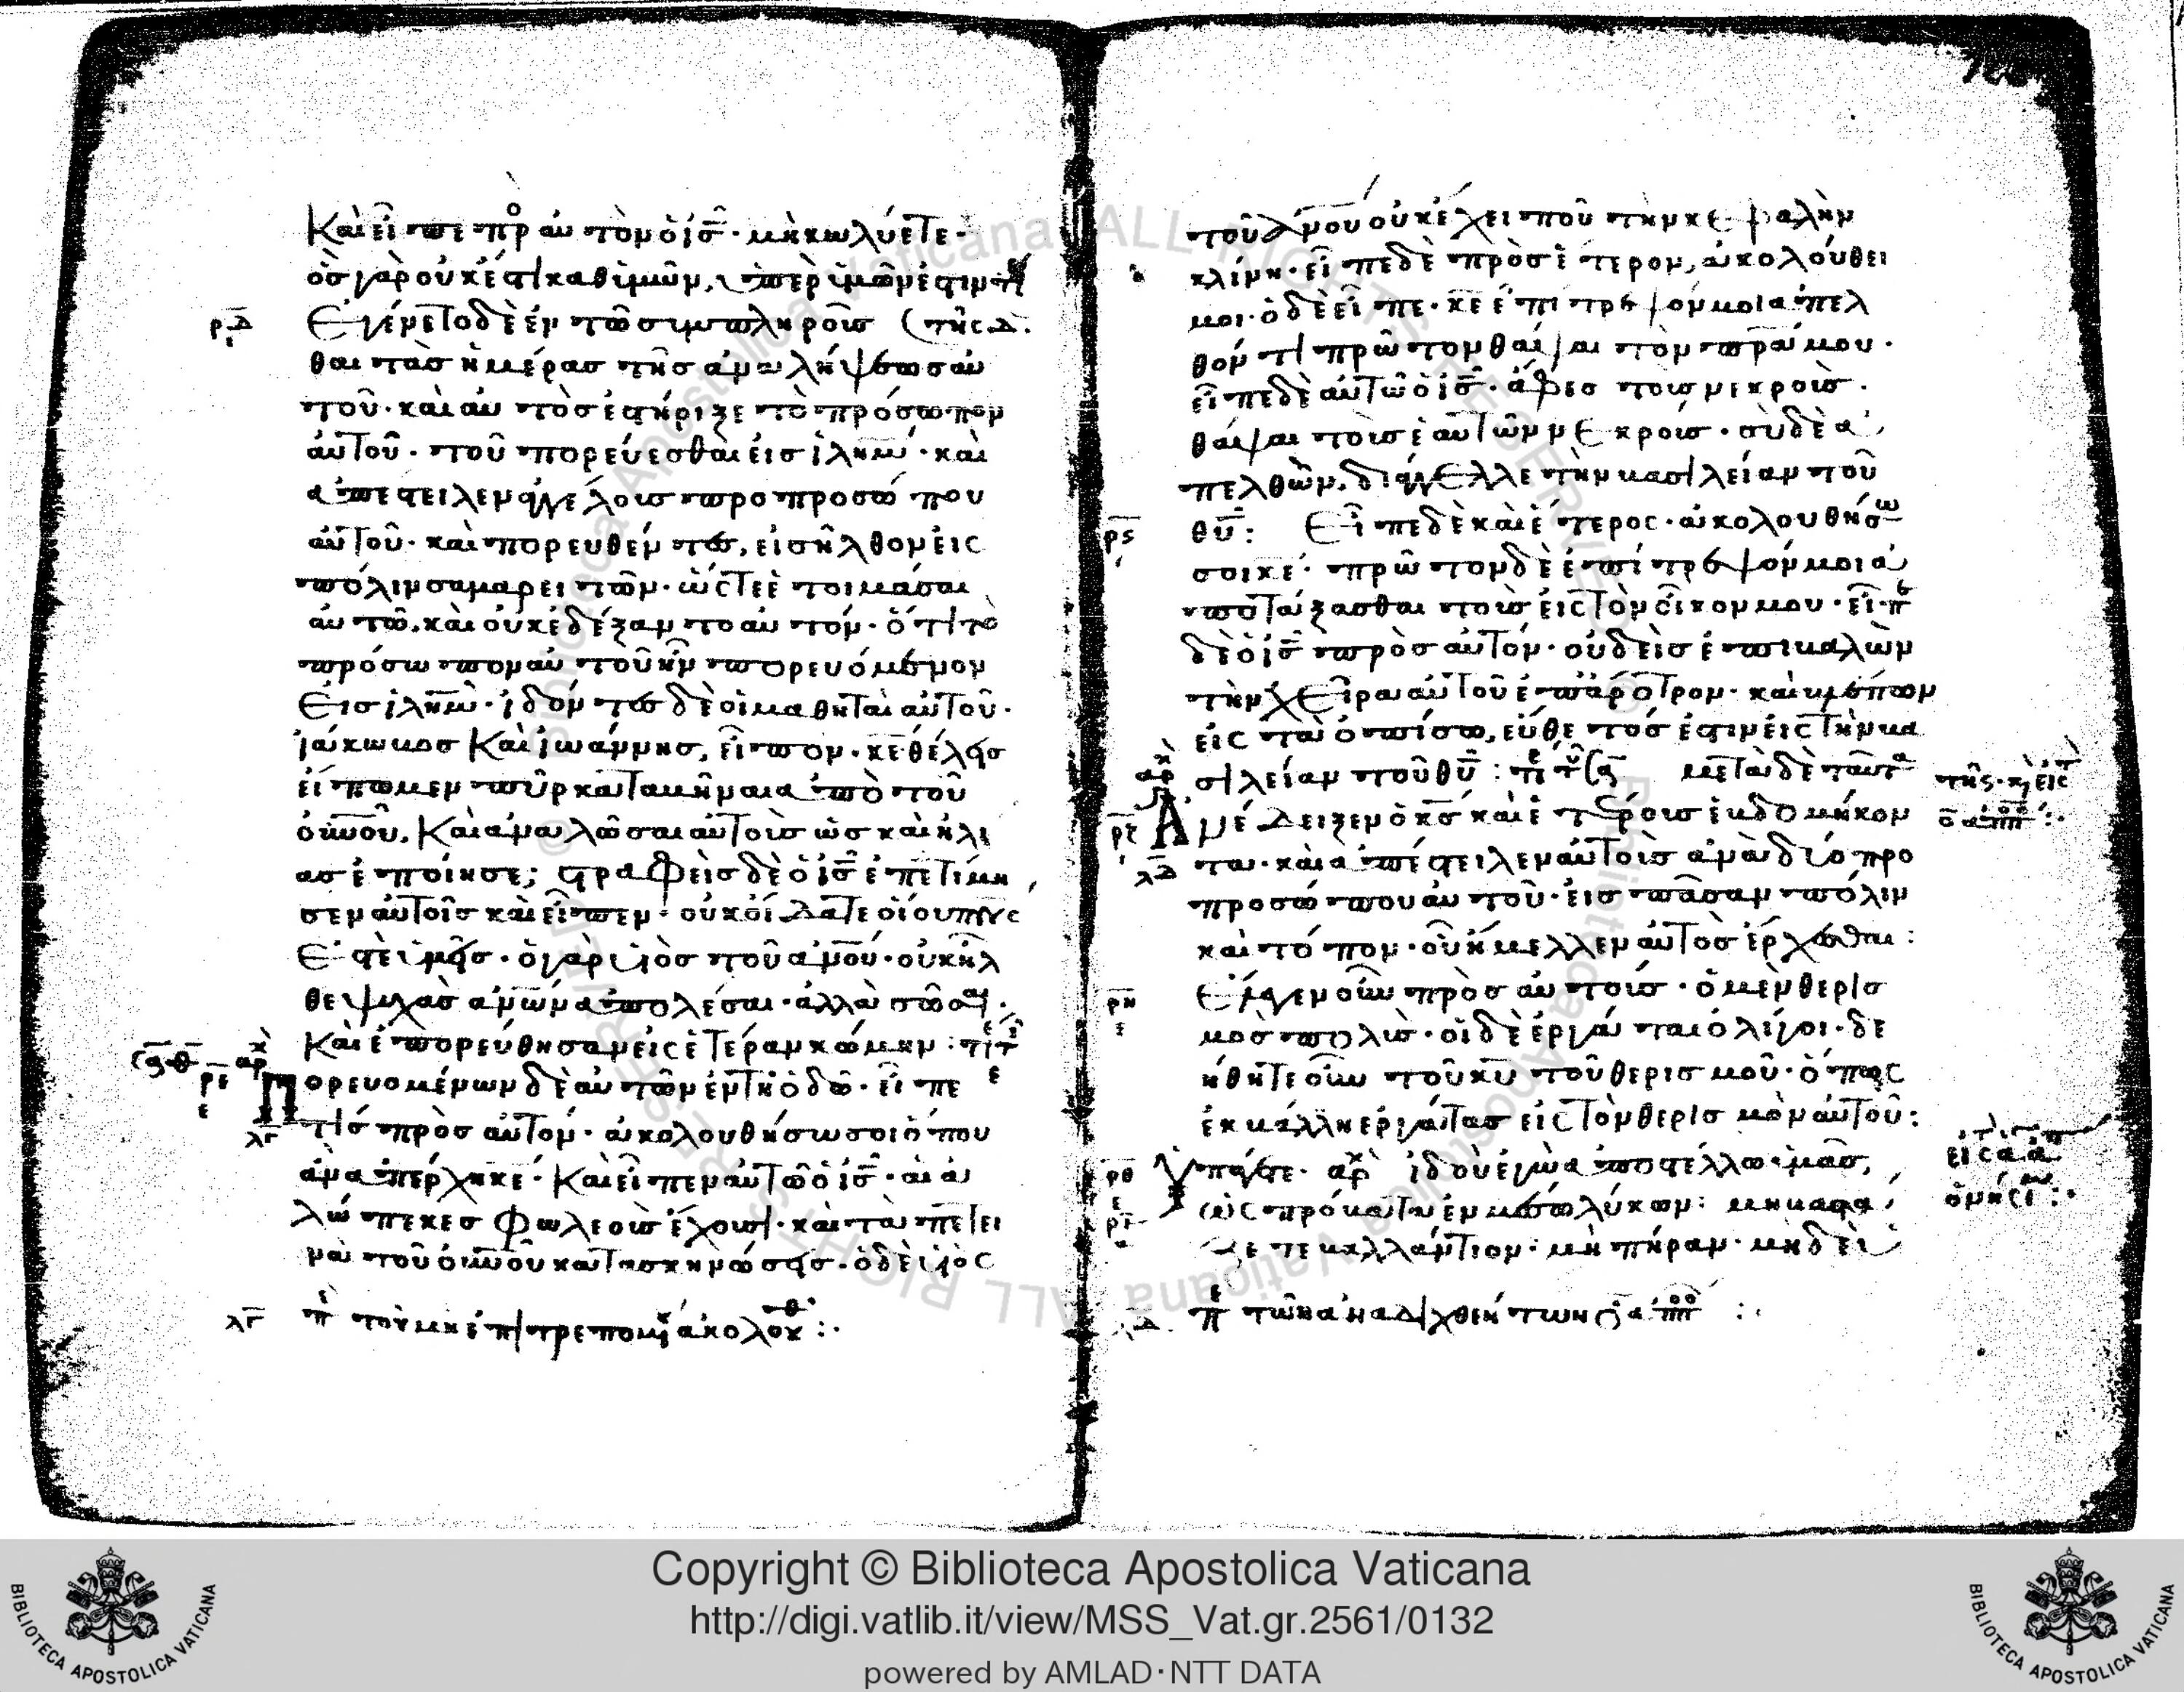 Καὶ εἶπε πρ αὐτὸν ὁ ις̅· μὴ κωλύετε·
ὃσ γὰρ οὐκ ἔστι καθ ἡμῶν, ὑπὲρ ἡμῶν ἐστιν
ρδ Ἐγένετο δὲ ἐν τῶ συμπληροῦσ (τῆς δ.
θαι τὰσ ἡμέρασ τῆσ ἀναλήψεωσ αὐ
τοῦ· καὶ αὐτὸσ ἐστήριξε τὸ πρόσωπον
αὐτοῦ· τοῦ πορεύεσθαι εἰσ ἱλημ̅· καὶ
ἀπέστειλεν ἀγγέλουσ πρὸ προσώπου
αὐτοῦ· καὶ πορευθέντεσ, εἰσῆλθον εἰς
πόλιν σαμαρειτῶν· ὥστε ἑτοιμάσαι
αὐτῶ. καὶ οὐκ ἐδέξαντο αὐτόν· ὅτι τὸ
πρόσωπον αὐτοῦ ἦν πορευόμενον
εἰσ ἱλημ̅· ἰδόντεσ δὲ οἱ μαθηταὶ αὐτοῦ·
ἰάκωβοσ καὶ ἰωάννησ, εἶπον· κε̅ θέλεισ
εἴπωμεν πῦρ καταβῆναι ἀπὸ τοῦ
οὐνοῦ, καὶ ἀναλῶσαι αὐτοὺσ ὡσ καὶ ἠλί
ασ ἐποίησε; στραφεὶσ δὲ ὁ ις̅ ἐπετίμη
σεν αὐτοῖσ καὶ εἶπεν· οὐκ οἴδατε οἵου πνς̅
ἐστὲ ὑμεῖσ· ὁ γὰρ υἱὸσ τοῦ ἀνου̅· οὐκ ἦλ
θε ψυχὰσ ἀνων̅ ἀπολέσαι· ἀλλὰ σῶσαι·
Καὶ ἐπορεύθησαν εἰς ἑτέραν κώμην:
ρε Πορευομένων δὲ αὐτῶν ἐν τῆ ὁδῶ· εἶπέ
λγ τισ πρὸσ αὐτόν· ἀκολουθήσω σοι ὅπου
ἂν ἀπέρχη κε̅· Καὶ εἶπεν αὐτῶ ὁ ις̅· αἱ ἀ
λώπεκεσ φωλεοὺσ ἔχουσι· καὶ τὰ πετει
νὰ τοῦ οὐνοῦ κατασκηνώσεισ· ὁ δὲ υἱὸς
λγ τοῦ μὴ ἐπιτρεπομ ἀκολουθ:·
τοῦ ἀνου̅ οὐκ ἔχει ποῦ τὴν κεφαλὴν
κλίνη· εἶπε δὲ πρὸσ ἕτερον, ἀκολούθει
μοι· ὁ δὲ εἶπε· κε̅ ἐπίτρεψόν μοι ἀπελ
θόντι πρῶτον θάψαι τὸν πρα̅ μου·
εἶπε δὲ αὐτῶ ὁ ις̅· ἄφεσ τοὺσ νεκροὺσ·
θάψαι τοὺσ ἑαυτῶν νεκροὺσ· σὺ δὲ ἀ
πελθὼν, διάγγελλε τὴν βασιλείαν τοῦ
ρς θυ̅: Εἶπε δὲ καὶ ἕτερος· ἀκολουθήσω
σοι κε̅· πρῶτον δὲ ἐπίτρεψόν μοι ἀ
ποτάξασθαι τοῖσ εἰς τὸν οἶκον μου· εἶπε
δὲ ὁ ις̅ πρὸσ αὐτόν· οὐδεὶσ ἐπιβαλὼν
τὴν χεῖρα αὐτοῦ ἐπ ἄροτρον· καὶ βλέπων
εἰς τὰ ὀπίσω, εὔθετόσ ἐστιν εἰς τὴν βα
σιλείαν τοῦ θυ̅: μετὰ δὲ ταῦτα
ρζ Ἀνέδειξεν ὁ κσ̅ καὶ ἑτέρουσ ἑβδομήκον
λδ τα· καὶ ἀπέστειλεν αὐτοὺσ ἀνὰ δύο πρὸ
προσώπου αὐτοῦ· εἰσ πᾶσαν πόλιν
καὶ τόπον· οὗ ἤμελλεν αὐτὸσ ἔρχεσθαι:
ρη Ἔλεγεν οὖν πρὸσ αὐτούσ· ὁ μὲν θερισ
μὸσ πολὺσ· οἱ δὲ ἐργάται ὀλίγοι· δε
ήθητε οὖν τοῦ κυ̅ τοῦ θερισμοῦ· ὅπως
ἐκβάλλη ἐργάτασ εἰς τὸν θερισμὸν αὐτοῦ:
ρθ Ὑπάγετε· αρχ ἰδοὺ ἐγὼ ἀποστέλλω ὑμᾶσ,
ρι ὡς πρόβατα ἐν μέσω λύκων: μὴ βαστά
ζετε βαλλάντιον· μὴ πήραν· μηδὲ
τῶν ἀναδιχθέντων ο ἀπο :·
Copyright © Biblioteca Apostolica Vaticana
http://digi.vatlib.it/view/MSS_Vat.gr.2561/0132
powered by AMLAD·NTT DATA
BIBLIOTECA APOSTOLICA VATICANA
BIBLIOTECA APOSTOLICA VATICANA